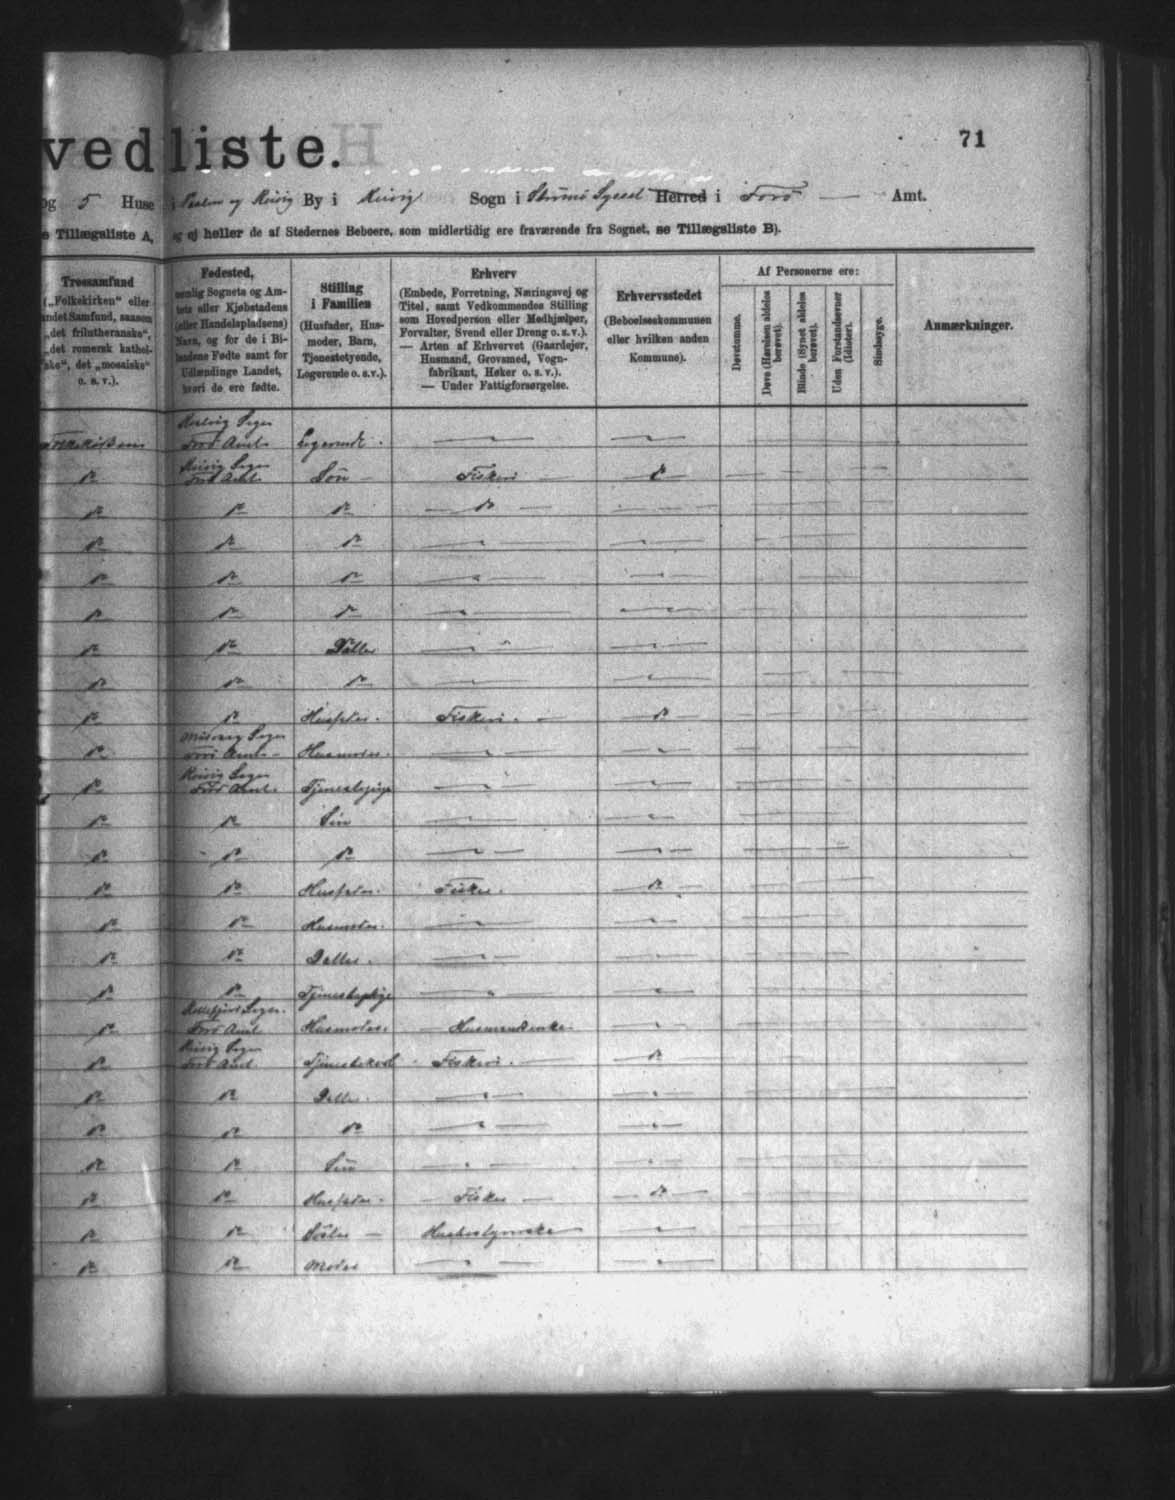 vedliste.
71
og 5 Huse i By i Sogn i Strømø Syssel Herred i Forö Amt.
e Tillægsliste A, og ej heller de af Stedernes Beboere, som midlertidig ere fraværende fra Sognet, se Tillægsliste B).
Troessamfund
(„Folkekirken“ eller
andet Samfund, saasom
„det frilutheranske“,
„det romersk kathol-
ske“, det „mosaiske“
o. s. v.).
Fødested,
nemlig Sognets og Am-
tets eller Kjøbstadens
(eller Handelspladsens)
Navn, og for de i Bi-
landene Fødte samt for
Udlændinge Landet,
hvori de ere fødte.
Stilling
i Familien
(Husfader, Hus-
moder, Barn,
Tjenestetyende,
Logerende o. s. v.).
Erhverv
(Embede, Forretning, Næringsvej og
Titel, samt Vedkommendes Stilling
som Hovedperson eller Medhjælper,
Forvalter, Svend eller Dreng o. s. v.).
— Arten af Erhvervet (Gaardejer,
Husmand, Grovsmed, Vogn-
fabrikant, Høker o. s. v.).
— Under Fattigforsørgelse.
Erhvervsstedet
(Beboelseskommunen
eller hvilken anden
Kommune).
Af Personerne ere:
Døvstumme.
Døve (Hørelsen aldeles
berøvet).
Blinde (Synet aldeles
berøvet).
Uden Forstandsevner
(Idioter).
Sindssyge.
Anmærkninger.
Sogn
Folkekirken Forö Amt Logerende
Sogn
do Forö Amt Sön Fiskeri do
do do do do
do do do
do do do
do do do
do do Datter
do do do
do do Husfader Fiskeri do
Sogn
do Amt Husmoder
Sogn
do Forö Amt Tjenestepige
do do Sön
do do do
do do Husfader Fisker do
do do Husmoder
do do Datter
do do Tjenestepige
Kollefjord Sogn
do Forö Amt Husmoder
Sogn
do Forö Amt Tjenestekarl Fiskeri do
do do Datter
do do do
do do Sön
do do Husfader Fisker do
do do Söster Husbestyrerske
do do Moder